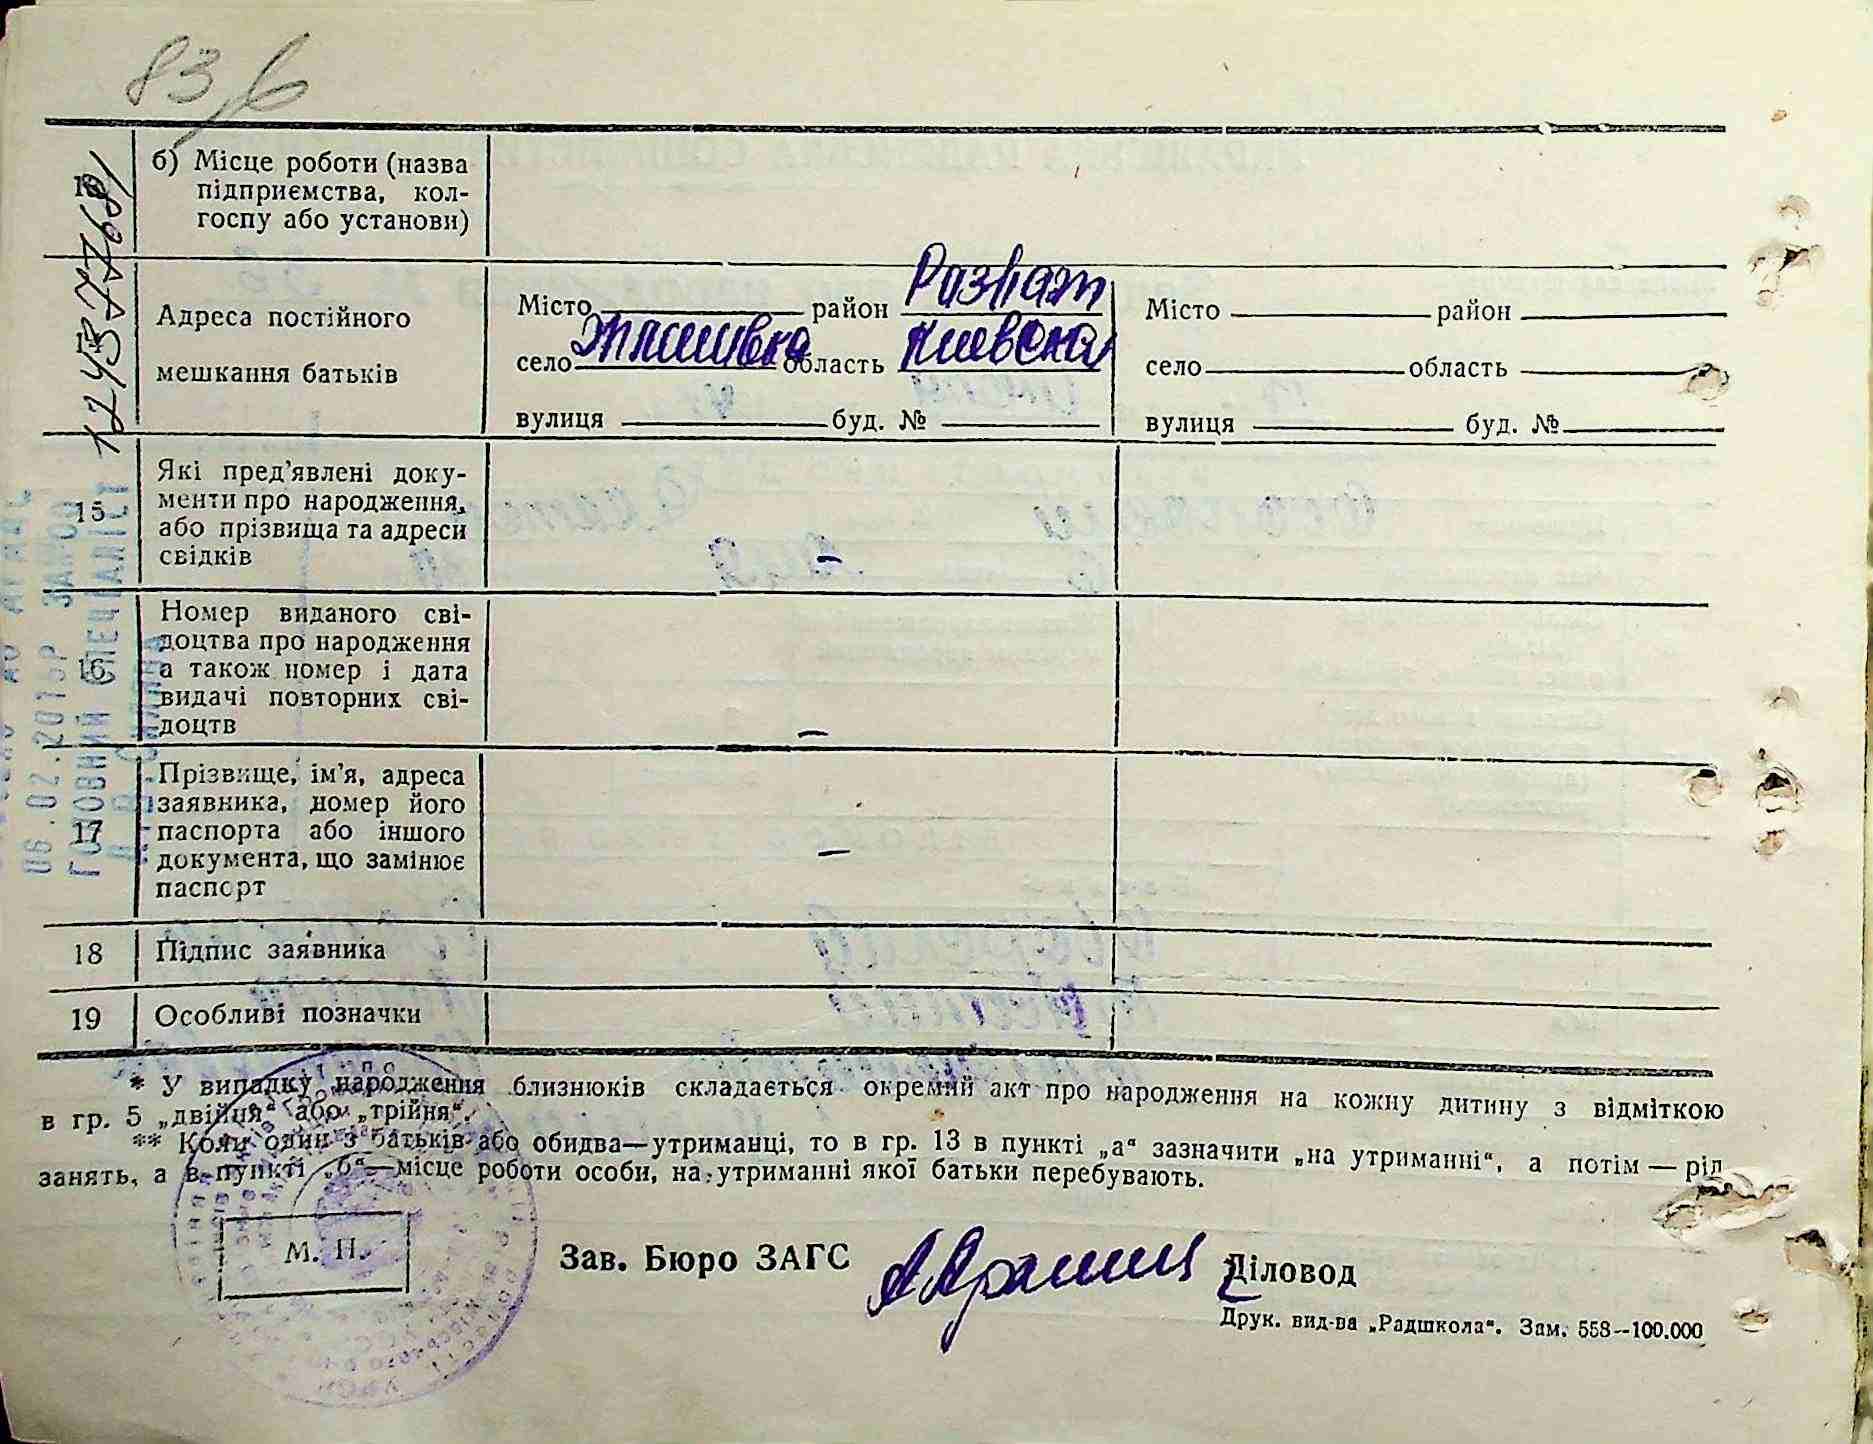 83
б) Місце роботи (назва
підприємства, кол-
госпу або установи)
Адреса постійного
мешкання батьків
Місто район
село область Киевская
вулиця буд. №
Місто район
село область
вулиця буд. №
15
Які пред’явлені доку-
менти про народження,
або прізвища та адреси
свідків
–
16
Номер виданого сві-
доцтва про народження
а також номер і дата
видачі повторних сві-
доцтв
–
17
Прізвище, ім’я, адреса
заявника, номер його
паспорта або іншого
документа, що замінює
паспорт
–
18
Підпис заявника
19
Особливі позначки
06.02.2015Р
ГОЛОВНИЙ СПЕЦІАЛІСТ
* У випадку народження близнюків складається окремий акт про народження на кожну дитину з відміткою
в гр. 5 „двійня“ або „трійня“.
** Коли один з батьків або обидва—утриманці, то в гр. 13 в пункті „а“ зазначити „на утриманні“, а потім — рід
занять, а в пункті „б“—місце роботи особи, на утриманні якої батьки перебувають.
М. П.
Зав. Бюро ЗАГС
Діловод
Друк. вид-ва „Радшкола“. Зам. 558—100.000